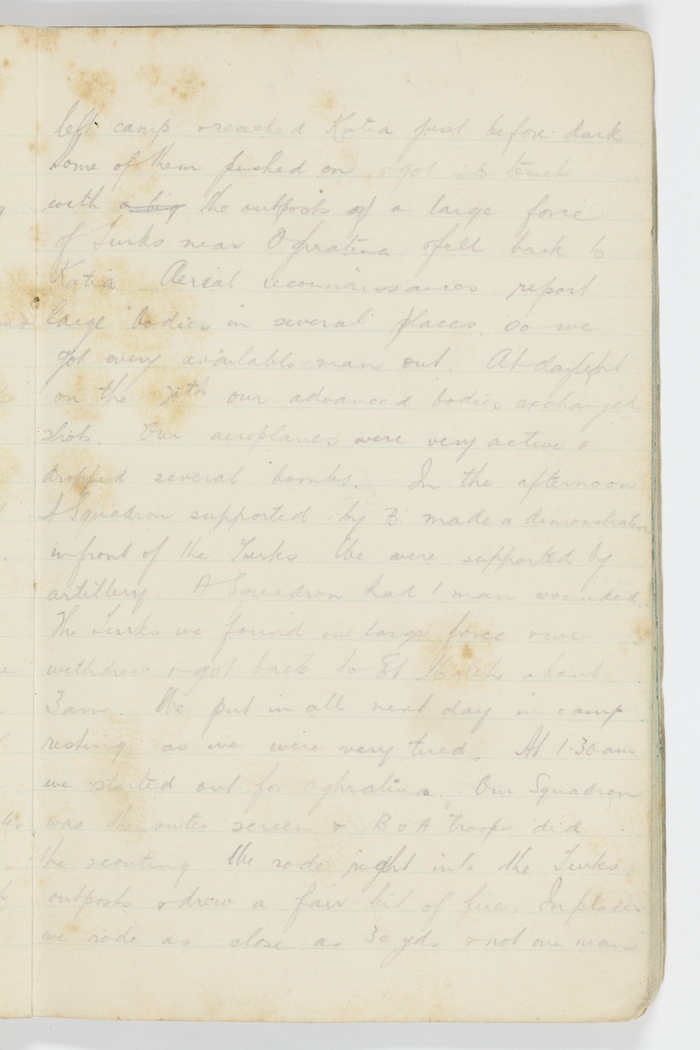 left camp & reached Katia just before dark
Some of them pushed on & got into touch
with a big the outposts of a large force
of Turks near Oghratina & fell back to
Katia Aerial reconnaissances report
large bodies in several places, so we
got every available man out. At daylight
on the 20th our advanced bodies exchanged
shots. Our aeroplanes were very active &
dropped several bombs. In the afternoon
A Squadron supported by B made a demonstration
in front of the Turks. We were supported by
artillery A Squadron had 1 man wounded
The Turks we found in large force & we
withdrew & got back to El about
3 am. We put in all next day in camp
resting as we were very tired. At 1-30 am
we started out for Oghratina. Our Squadron
was the screen & B & A troops did
the scouting We rode right into the Turks
outposts & drew a fair bit of fire. In places
we rode as close as 30 yds & not one man